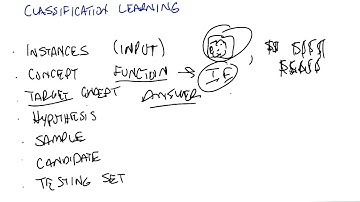 CLASSIFICATION LEARNING
INSTANCES (INPUT)
CONCEPT FUNCTION → T F
TARGET CONCEPT ANSWER
HYPOTHESIS
SAMPLE
CANDIDATE
TESTING SET